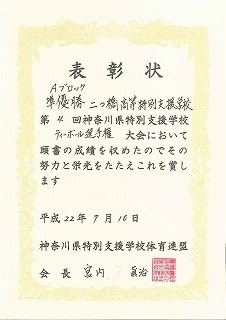 表彰状
Aブロック
準優勝 二つ橋高等特別支援学校
第4回神奈川県特別支援学校
ティーボール選手権 大会において
頭書の成績を収めたのでその
努力と栄光をたたえこれを賞し
ます
平成22年7月10日
神奈川県特別支援学校体育連盟
会長 宮内 眞治